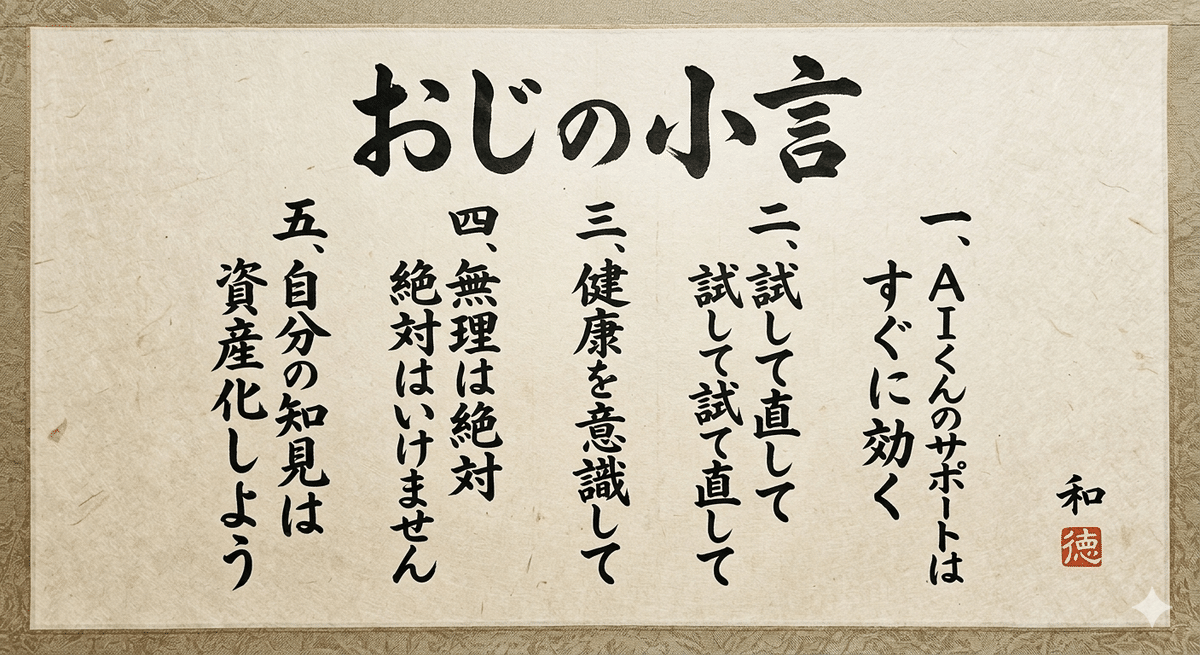 おじの小言
一、AIくんのサポートは
すぐに効く
二、試して直して
試して試て直して
三、健康を意識して
四、無理は絶対
絶対はいけません
五、自分の知見は
資産化しよう
和
徳